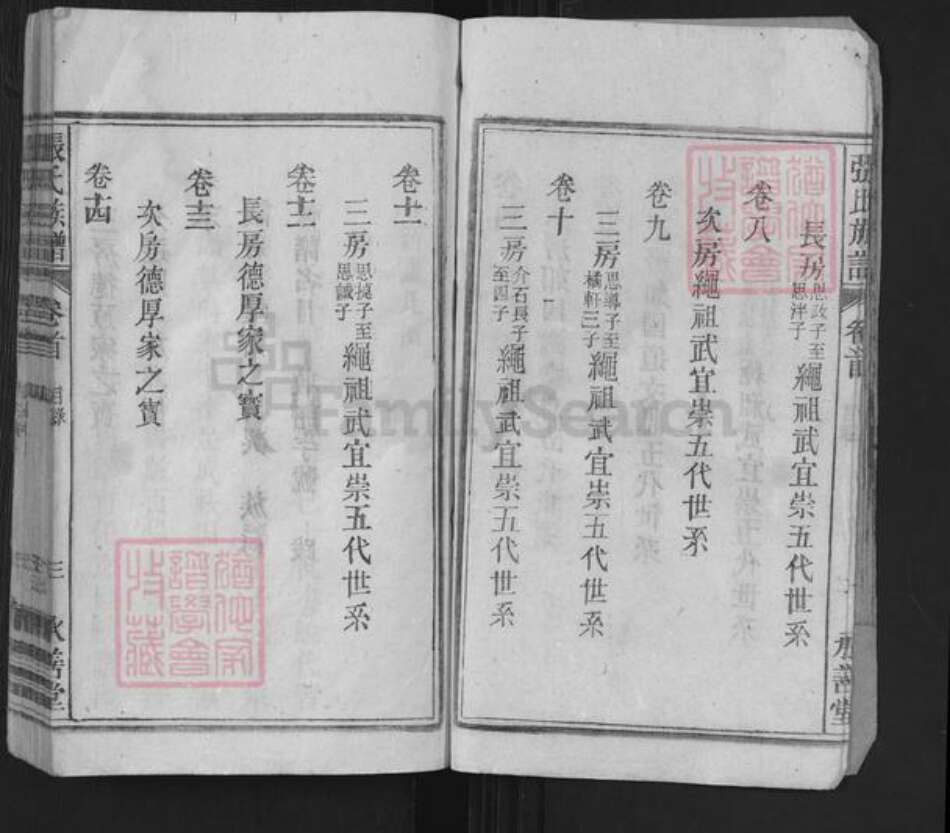 張氏族譜 卷首
長房思政子至思泮子繩祖武宜崇五代世系
卷八
次房繩祖武宜崇五代世系
卷九
三房思導子至橘軒三子繩祖武宜崇五代世系
卷十
三房介石長子至四子繩祖武宜崇五代世系
卷十一
三房思撓子至思誠子繩祖武宜崇五代世系
卷十二
長房德厚家之寶
卷十三
次房德厚家之寶
卷十四
張氏族譜 卷首 目錄 三 承善堂
FamilySearch